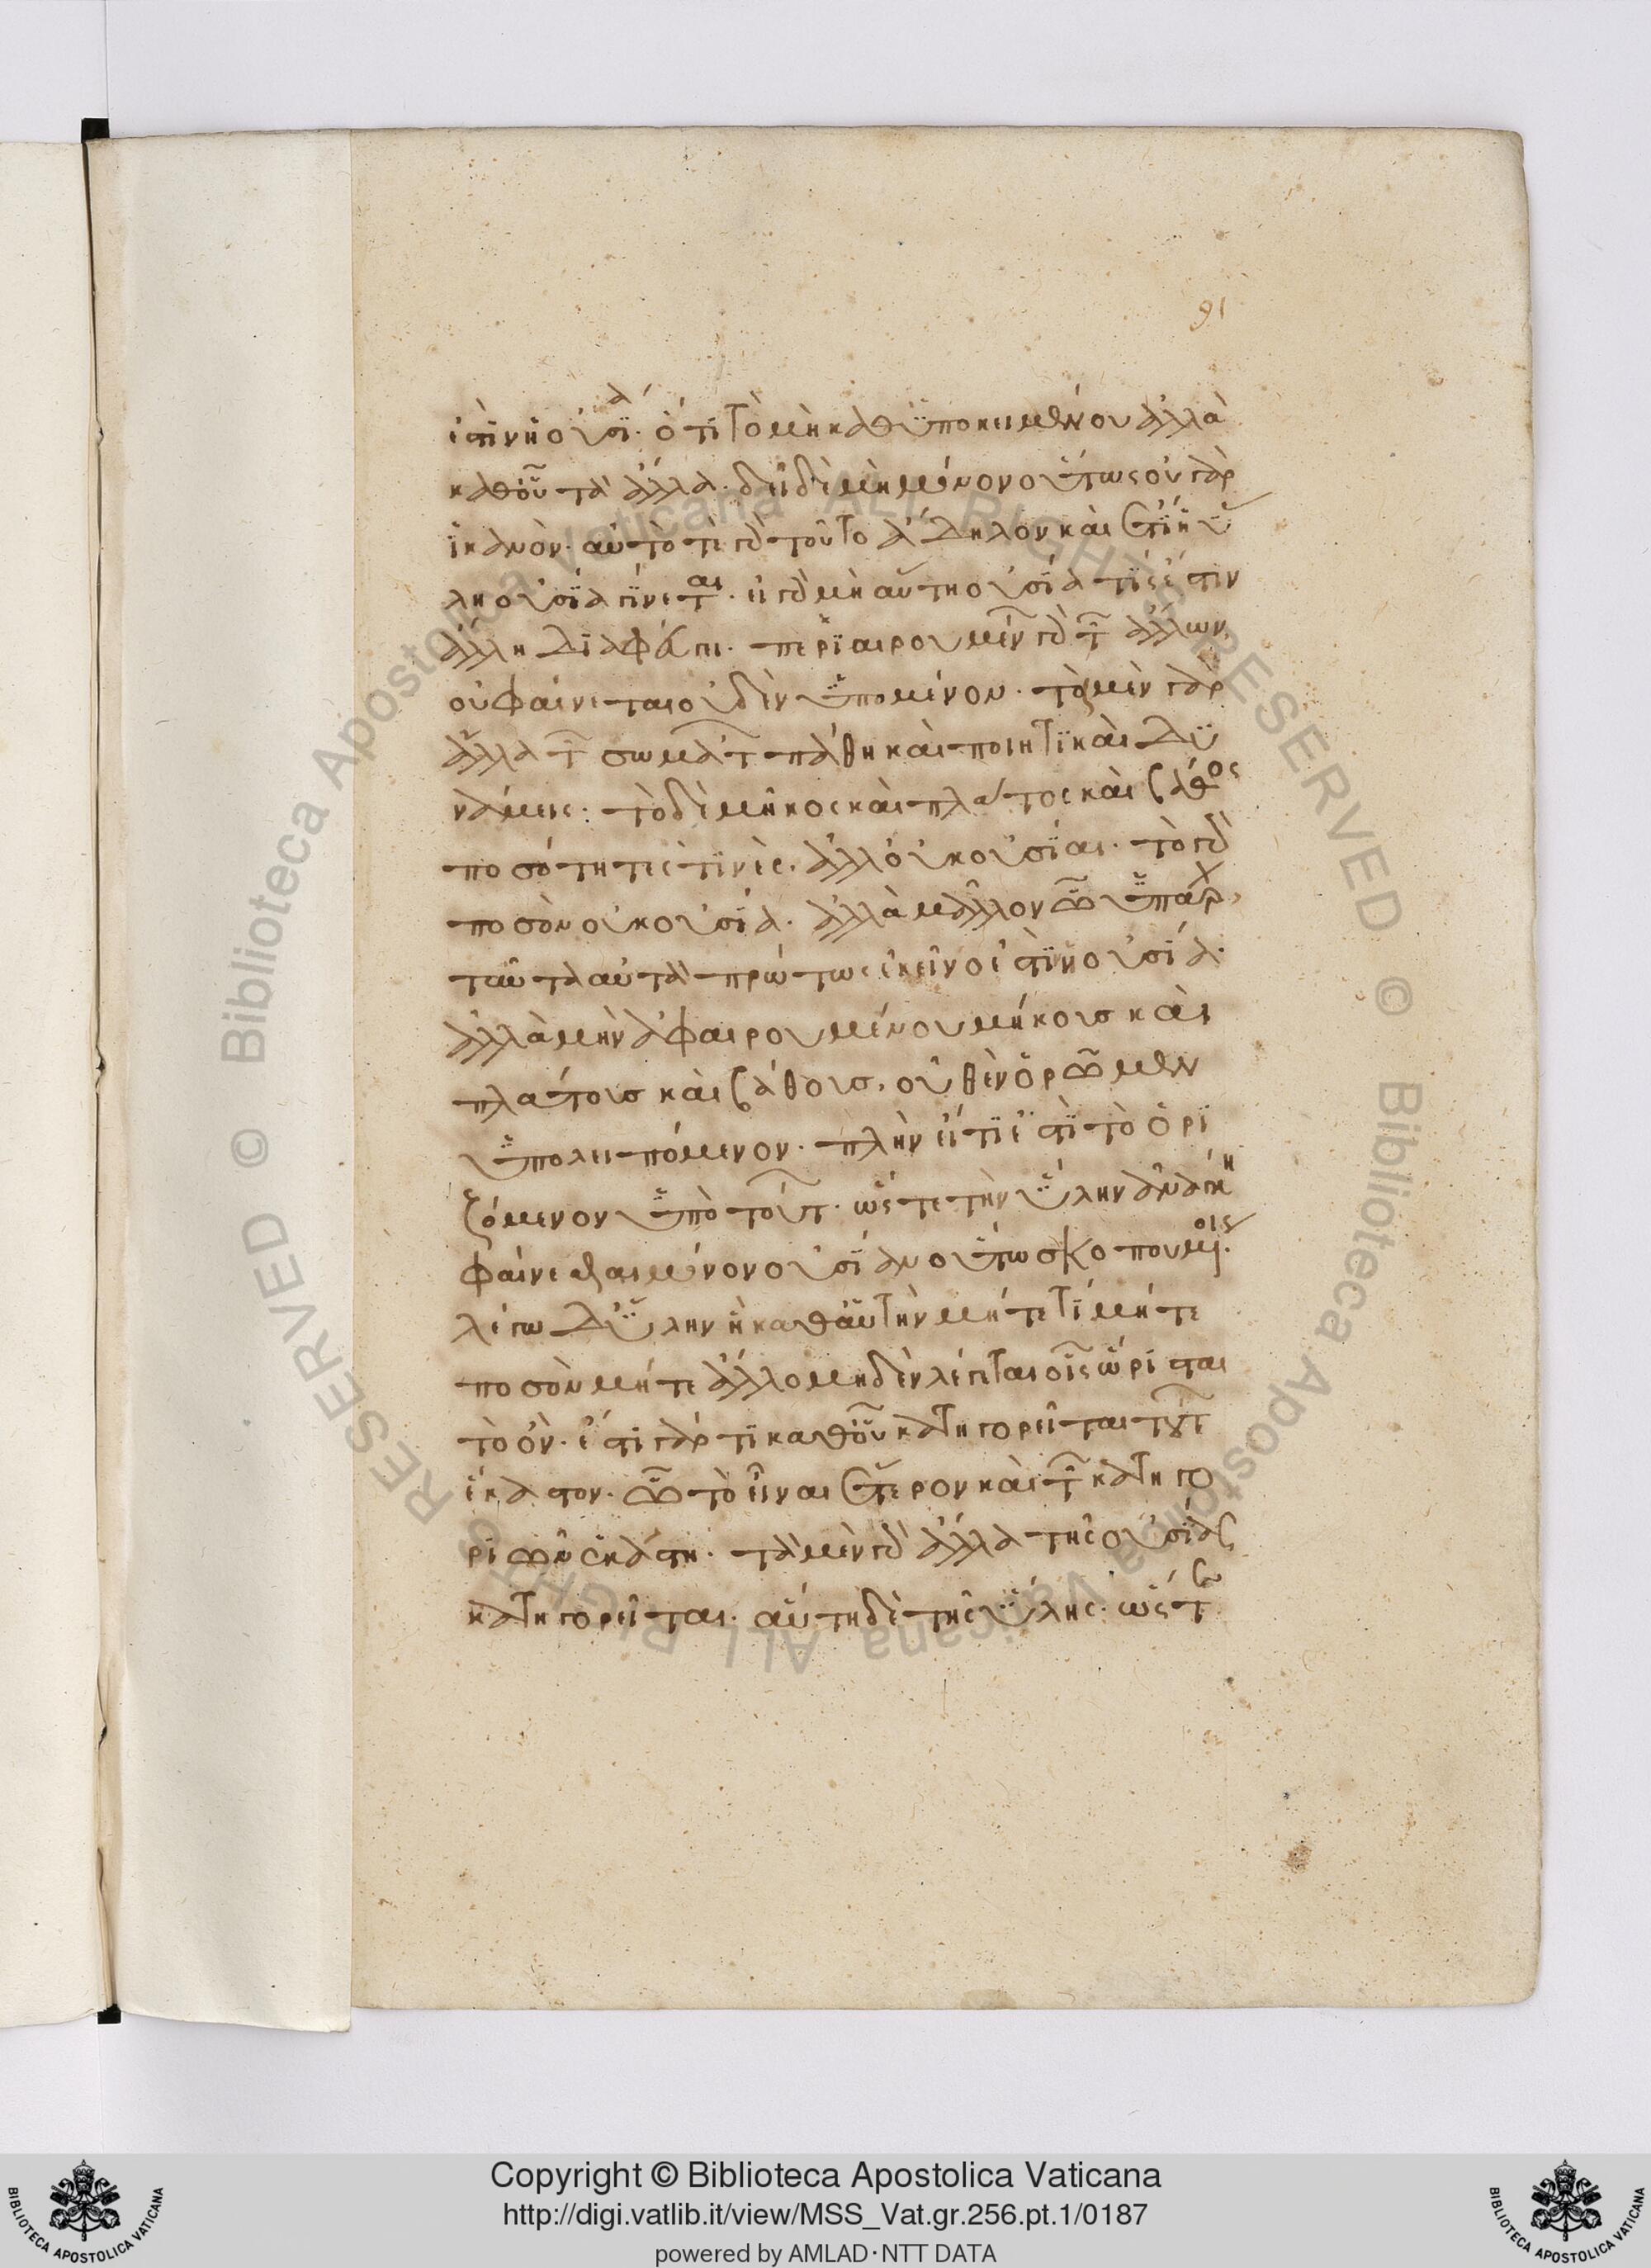 91
ἐστὶν ἡ οὐσία. ὅτι τὸ μὴ καθ ὑποκειμένου ἀλλὰ
καθ οὗ τὰ ἄλλα. δεῖ δὲ μὴ μόνον οὕτως οὐ γὰρ
ἱκανόν. αὐτὸ τε γὰρ τοῦτο ἄδηλον καὶ ἔτι ἡ ὕ
λη οὐσία γίνεται. εἰ γὰρ μὴ αὕτη οὐσία τίς ἐστιν
ἄλλη διαφεύγει. περιαιρουμένων γὰρ τῶν ἄλλων
οὐ φαίνεται οὐδὲν ὑπομένον. τὰ μὲν γὰρ
ἄλλα τῶν σωμάτων πάθη καὶ ποιήματα καὶ δυ
νάμεις. τὸ δὲ μῆκος καὶ πλάτος καὶ βάθος
ποσότητές τινές. ἀλλ οὐκ οὐσίαι. τὸ γὰρ
ποσὸν οὐκ οὐσία. ἀλλὰ μᾶλλον ᾧ ὑπάρχει
ταῦτα αὐτὰ πρώτως ἐκεῖνο ἐστὶν ἡ οὐσία.
ἀλλὰ μὴν ἀφαιρουμένου μήκους καὶ
πλάτους καὶ βάθους, οὐθὲν ὁρῶμεν
ὑπολειπόμενον. πλὴν εἴ τι ἐστὶ τὸ ὁρι
ζόμενον ὑπὸ τούτων. ὥστε τὴν ὕλην ἀνάγκη
φαίνεσθαι μόνον οὐσίαν οὕτω σκοπουμένοις.
λέγω δ ὕλην ἣ καθ αὑτὴν μήτε τί μήτε
ποσὸν μήτε ἄλλο μηδὲν λέγεται οἷς ὥρισται
τὸ ὄν. ἔστι γάρ τι καθ οὗ κατηγορεῖται τούτων
ἕκαστον. ᾧ τὸ εἶναι ἕτερον καὶ τῶν κατηγο
ριῶν ἑκάστῃ. τὰ μὲν γὰρ ἄλλα τῆς οὐσίας
κατηγορεῖται. αὕτη δὲ τῆς ὕλης. ὥστε
Copyright © Biblioteca Apostolica Vaticana
http://digi.vatlib.it/view/MSS_Vat.gr.256.pt.1/0187
powered by AMLAD·NTT DATA